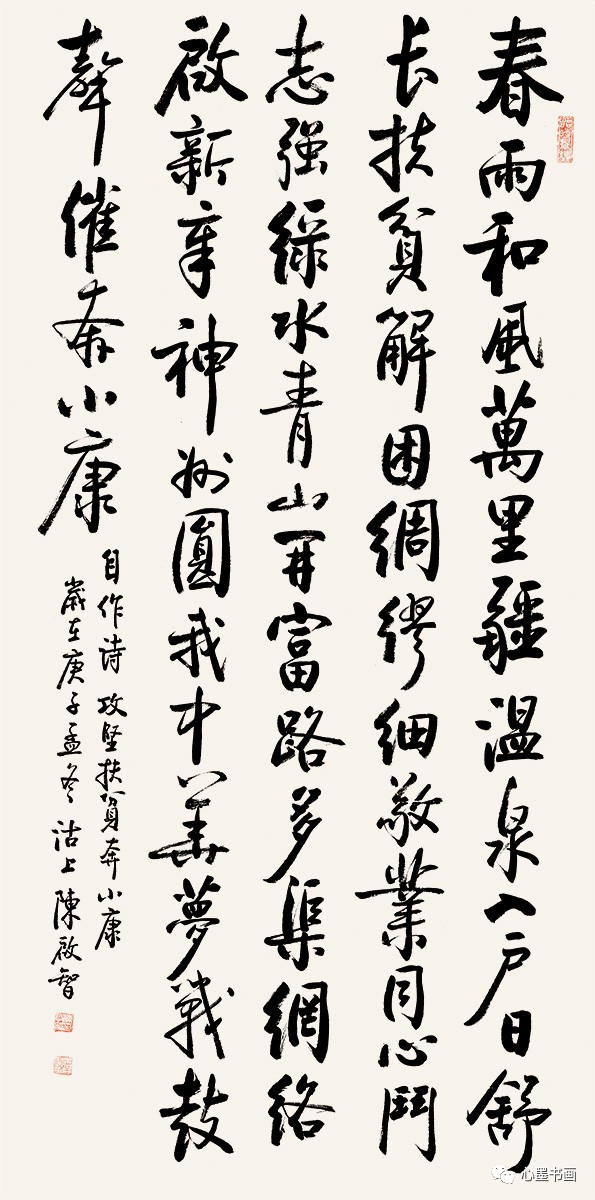 春雨和風萬里疆溫泉入户日舒
长扶貧解困綢繆細敬業同心鬥
志强綠水青山开富路多渠網絡
啟新章神州圓我中華夢戰鼓
聲催奔小康
自作诗攻堅扶貧奔小康
歲在庚子孟冬沽上陳啟智
心墨书画